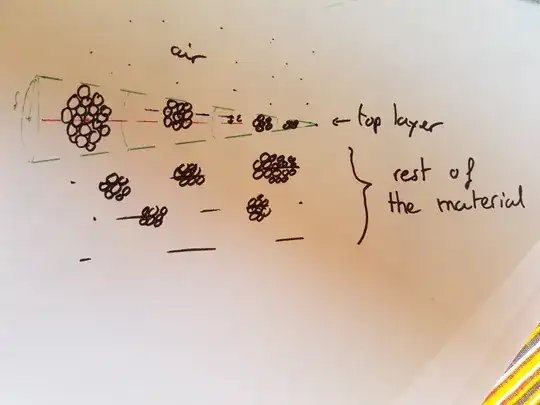 air
← top layer
rest of
the material